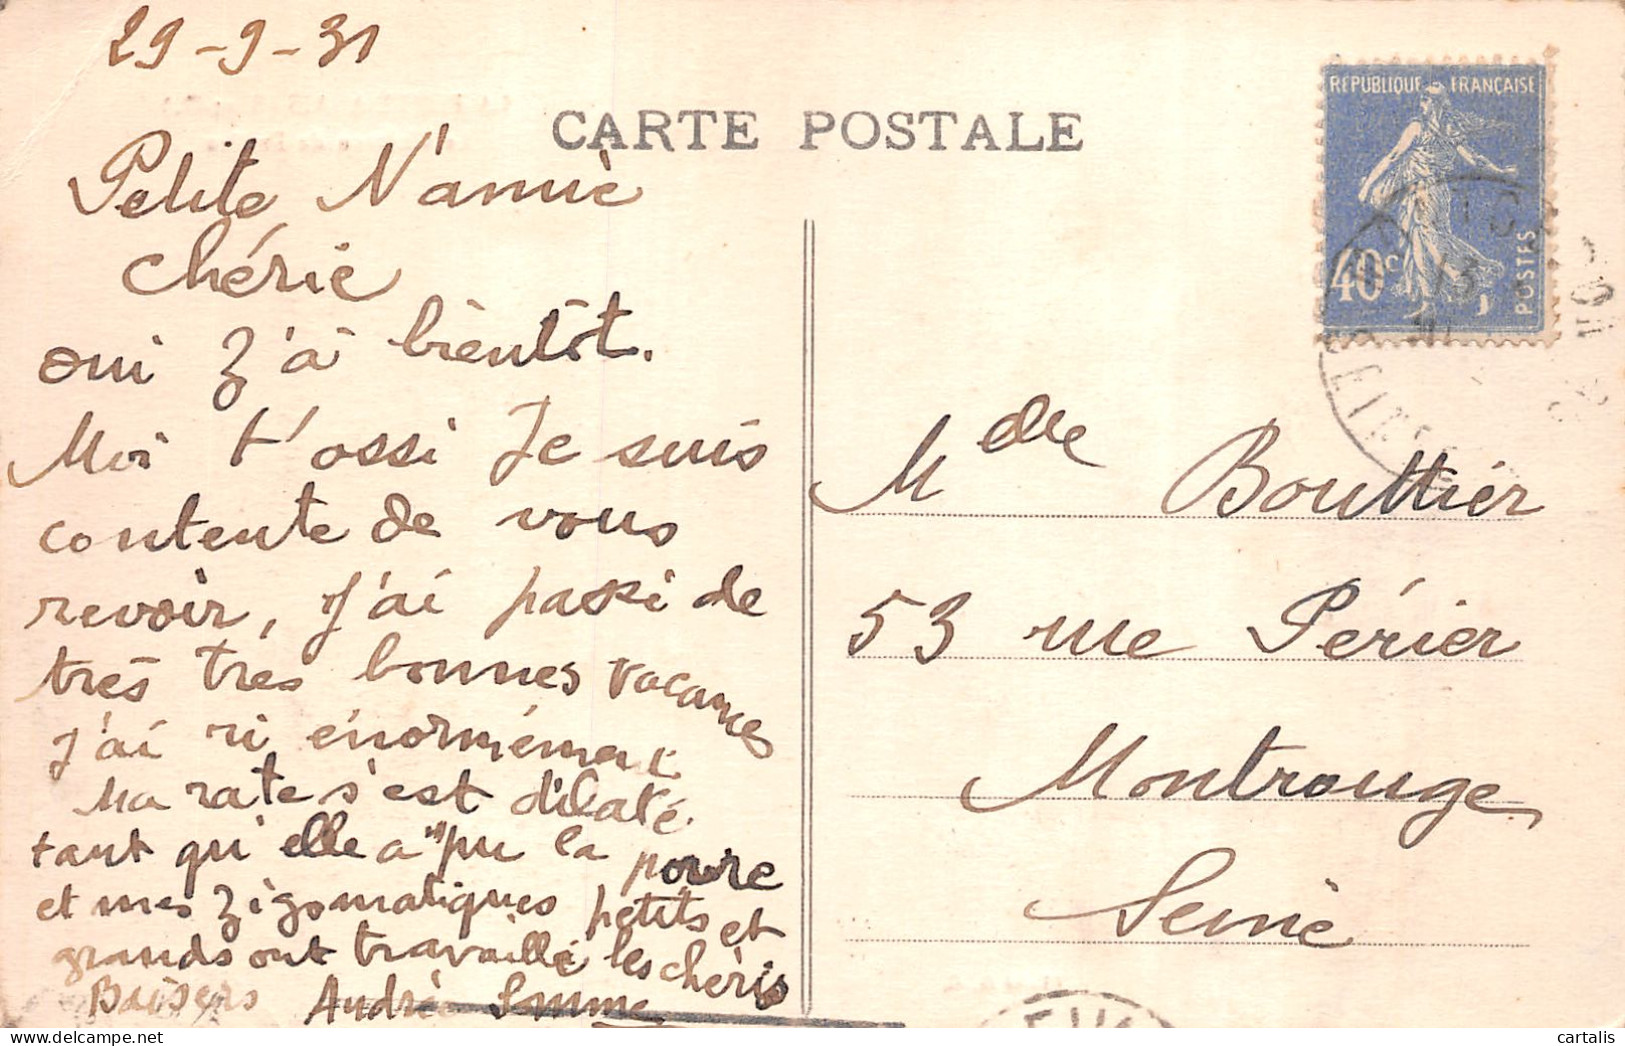 29-9-31
CARTE POSTALE
RÉPUBLIQUE FRANÇAISE
40c
POSTES
Petite N'amie
Chérie
oui z'à bientôt.
Moi t'ossi Je suis
contente de vous
revoir, J'ai passé de
très très bonnes vacances
J'ai ri énormément
Ma rate s'est dilaté
tant qu'elle a pu la povre
et mes zigomatiques petits et
grands ont travaillé les chéris
Baisers Andrée
Melle Bouttier
53 rue Périer
Montrouge
Seine
cartalis